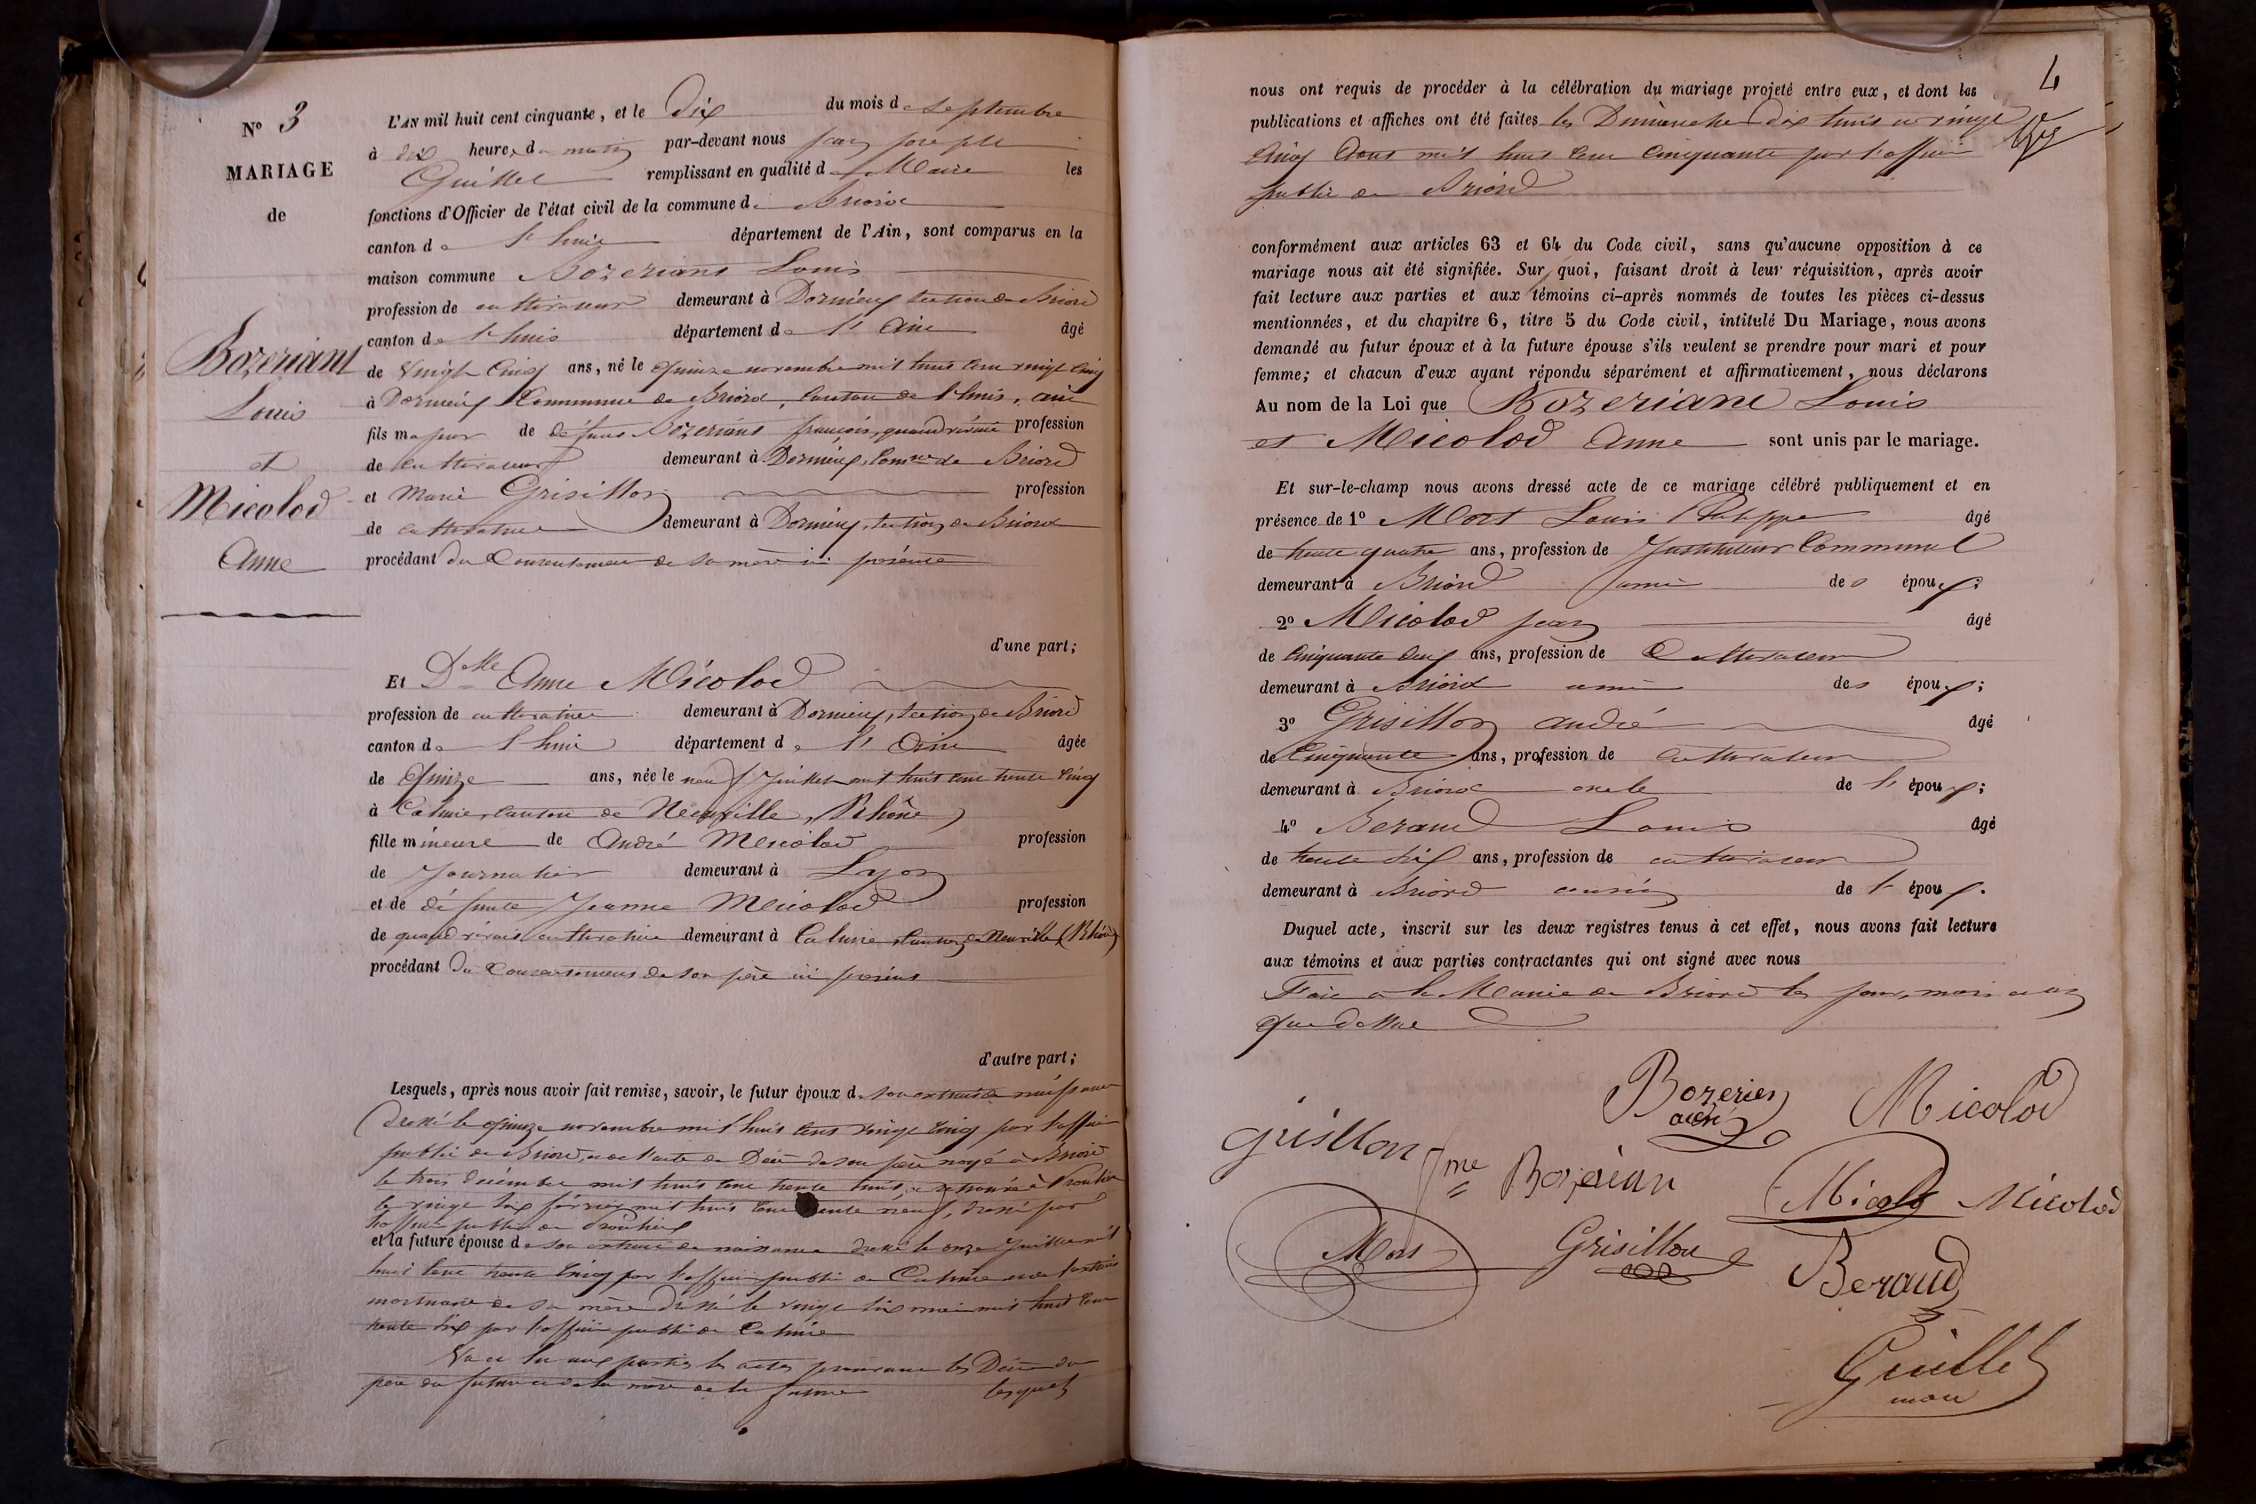 N° 3
MARIAGE
de
Bozeriant
Louis
et
Micolod
Anne
L'AN mil huit cent cinquante, et le dix du mois de septembre
à dix heures du matin par-devant nous jean joseph
Guillet remplissant en qualité de Maire les
fonctions d'Officier de l'état civil de la commune de Briord
canton de Lhuis département de l'Ain, sont comparus en la
maison commune Bozeriant Louis
profession de cultivateur demeurant à Dornieux section de Briord
canton de Lhuis département de l'Ain âgé
de Vingt Cinq ans, né le quinze novembre mil huit cent vingt cinq
à Dornieux Commune de Briord, canton de Lhuis, ain
fils majeur de défunt Bozeriant françois, quand vivait profession
de cultivateur demeurant à Dornieux, Comne de Briord
et Marie Grisillon profession
de cultivatrice demeurant à Dornieux, section de Briord
procédant du Consentement de sa mère ici présente
d'une part;
Et Dlle Anne Micolod
profession de cultivatrice demeurant à Dornieux, section de Briord
canton de Lhuis département de l'Ain âgée
de Quinze ans, née le neuf Juillet mil huit cent trente cinq
à Caluire, canton de Neuville, (Rhône)
fille mineure de André Micolod profession
de Journalier demeurant à Lyon
et de défunte Jeanne Micolod profession
de quand vivait cultivatrice demeurant à Caluire, canton de Neuville (Rhône)
procédant du Consentement de son père ici présent
d'autre part;
Lesquels, après nous avoir fait remise, savoir, le futur époux de son extrait de naissance
dressé le quinze novembre mil huit cent vingt cinq par l'officier
public de Briord, et de l'acte de Décès de son père noyé à Briord
le trois décembre mil huit cent trente huit, et retrouvé à
le vingt six février mil huit cent trente neuf, dressé par
l'officier public de
et la future épouse de son extrait de naissance dressé le onze Juillet mil
huit cent trente cinq par l'officier public de Caluire et de l'extrait
mortuaire de sa mère dressé le vingt six mai mil huit cent
trente six par l'officier public de Caluire
Vu et lu aux parties les actes prouvant les Décès du
père du futur et de la mère de la future lesquels
4
nous ont requis de procéder à la célébration du mariage projeté entre eux, et dont les
publications et affiches ont été faites les Dimanches dix huit et vingt
cinq Août mil huit cent cinquante par l'officier
public de Briord
conformément aux articles 63 et 64 du Code civil, sans qu'aucune opposition à ce
mariage nous ait été signifiée. Sur quoi, faisant droit à leur réquisition, après avoir
fait lecture aux parties et aux témoins ci-après nommés de toutes les pièces ci-dessus
mentionnées, et du chapitre 6, titre 5 du Code civil, intitulé Du Mariage, nous avons
demandé au futur époux et à la future épouse s'ils veulent se prendre pour mari et pour
femme; et chacun d'eux ayant répondu séparément et affirmativement, nous déclarons
Au nom de la Loi que Bozeriant Louis
et Micolod Anne sont unis par le mariage.
Et sur-le-champ nous avons dressé acte de ce mariage célébré publiquement et en
présence de 1° Mort Louis Philippe âgé
de trente quatre ans, profession de Instituteur Communal
demeurant à Briord ami des époux;
2° Micolod jean âgé
de cinquante deux ans, profession de Cultivateur
demeurant à Briord ami des époux;
3° Grisillon andré âgé
de Cinquante ans, profession de cultivateur
demeurant à Briord oncle de l'époux;
4° Beraud Louis âgé
de trente six ans, profession de cultivateur
demeurant à Briord cousin de l'époux.
Duquel acte, inscrit sur les deux registres tenus à cet effet, nous avons fait lecture
aux témoins et aux parties contractantes qui ont signé avec nous
Fait à la Mairie de Briord les jour, mois et an
que dessus
Bozerien
Micolod
Grisllon fme Bozerian
Micolod Micolod
Mort Grisillon Beraud
Guillet
maire